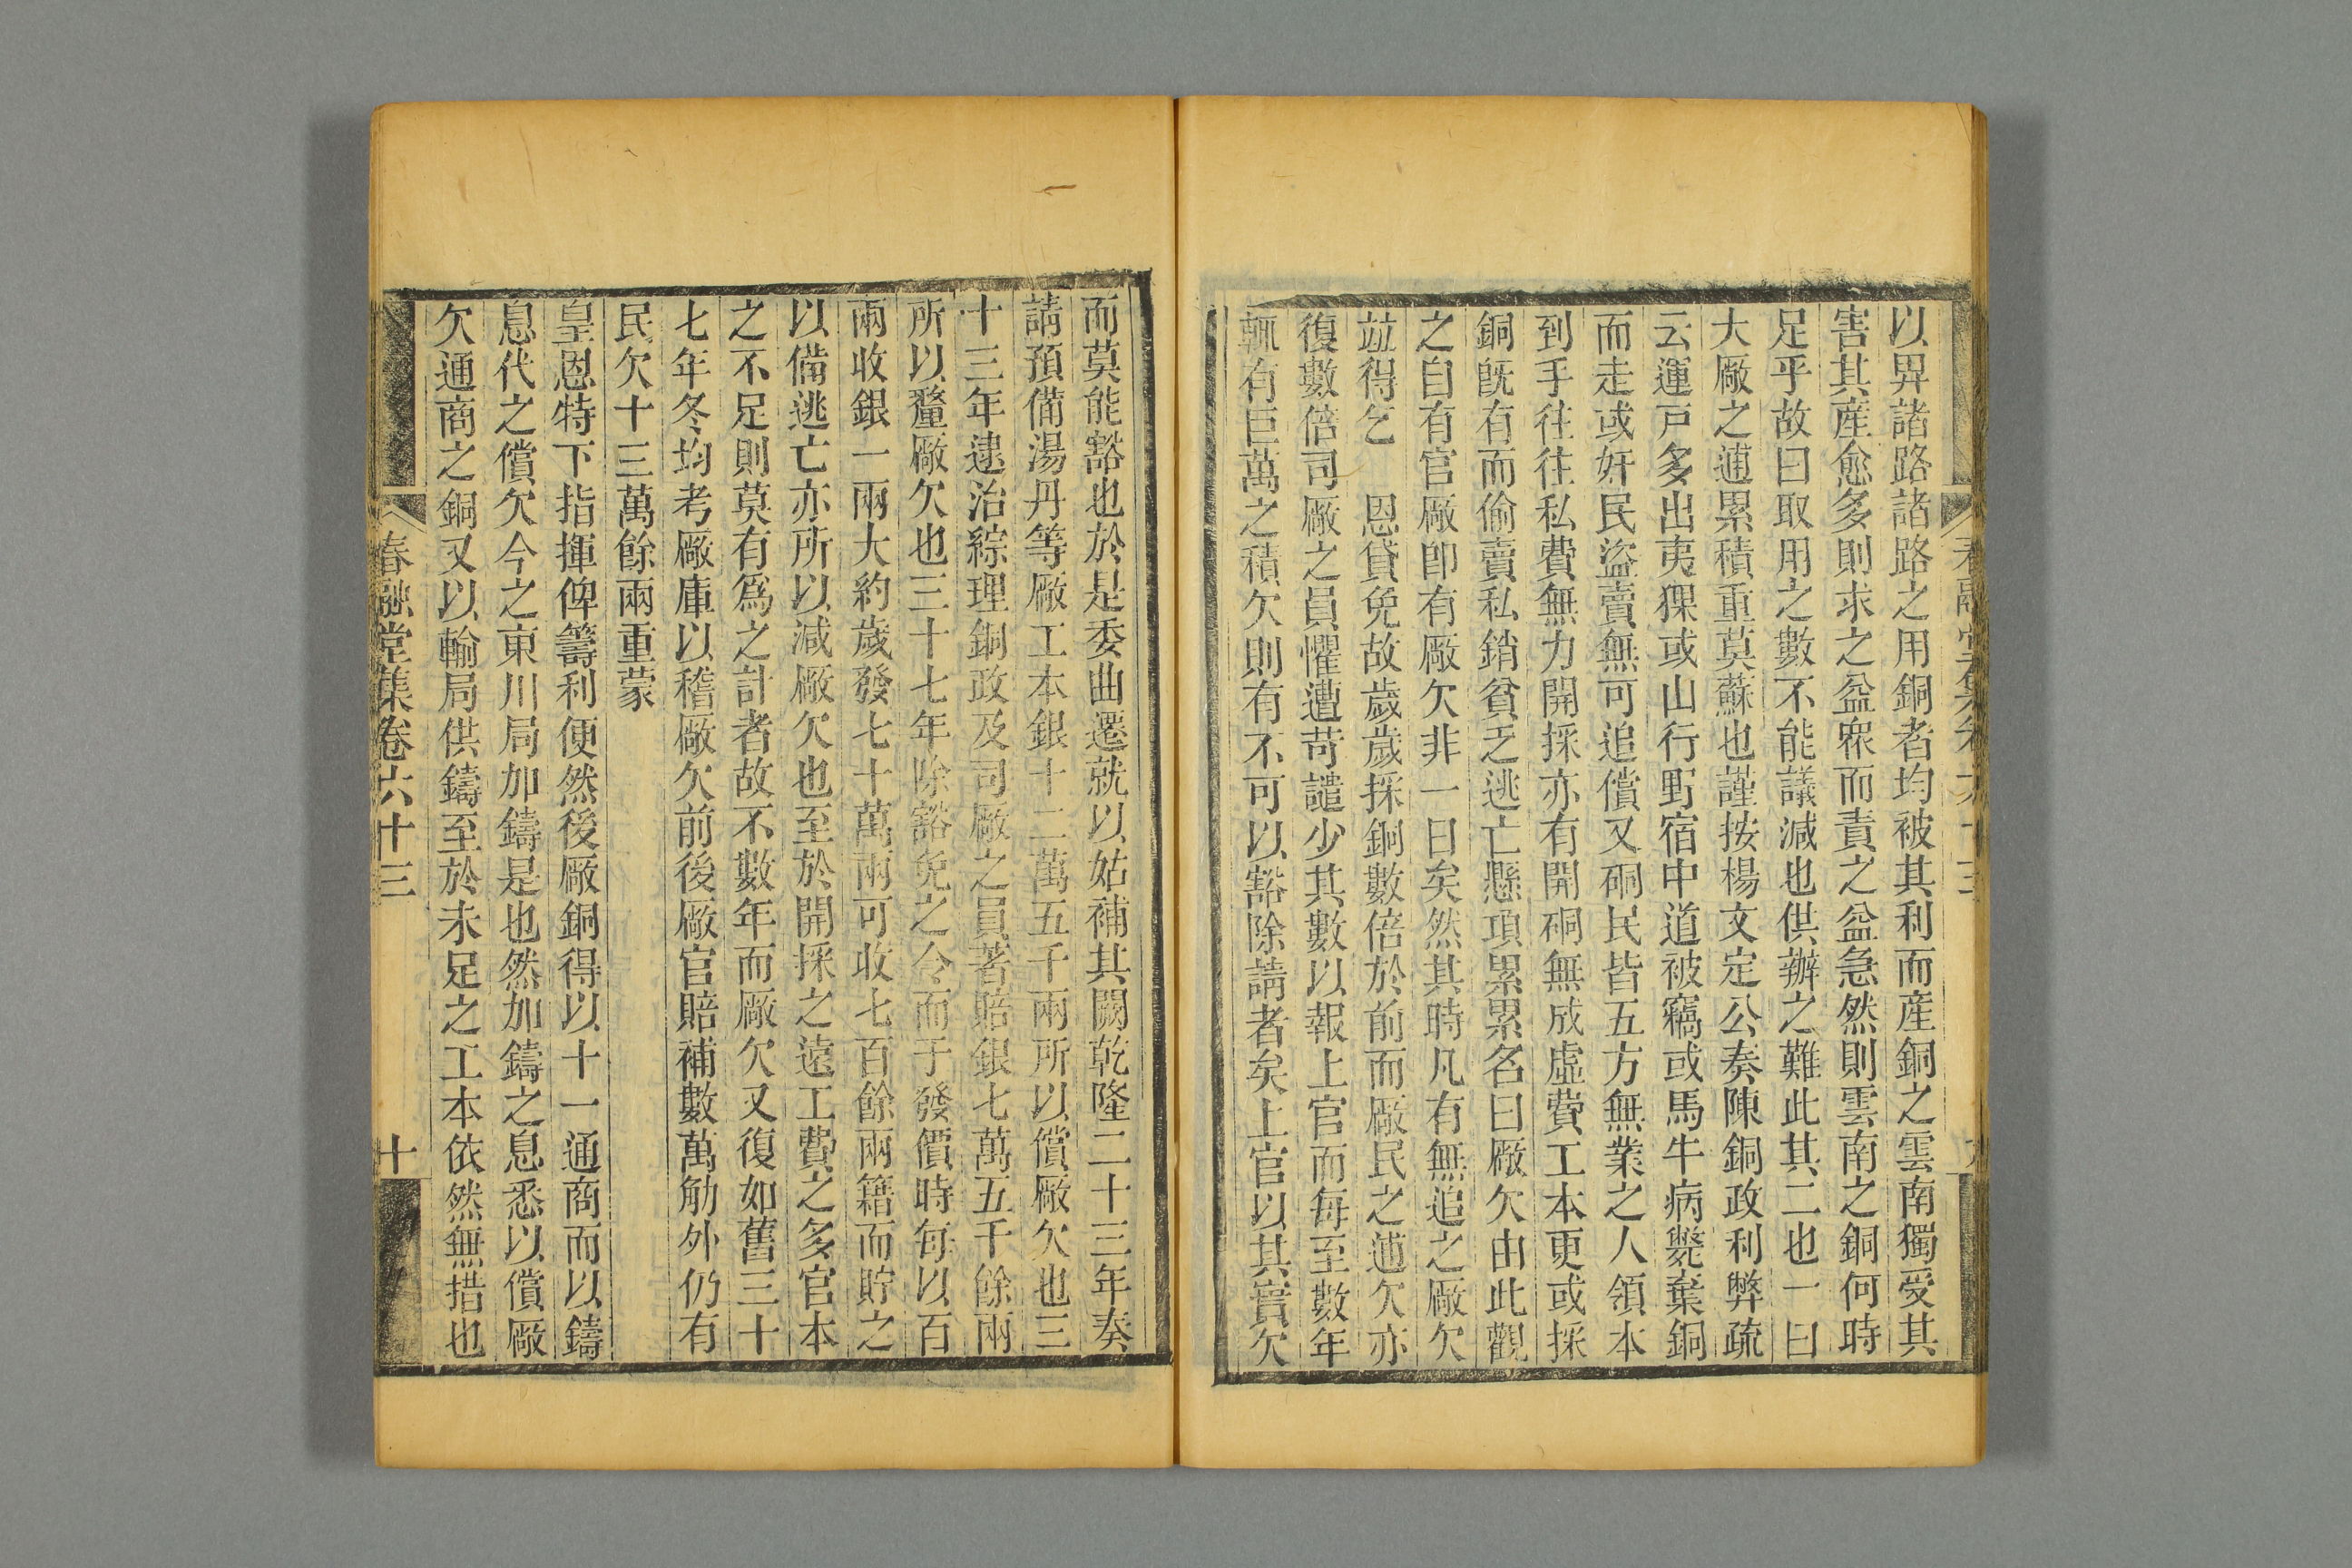 以畀諸路諸路之用銅者均被其利而産銅之雲南獨受其
害其産愈多則求之益衆而責之益急然則雲南之銅何時
足乎故曰取用之數不能議減也供辦之難此其二也一曰
大厰之逋累積重莫蘇也謹按楊文定公奏陳銅政利弊疏
云運戸多出夷猓或山行野宿中道被竊或馬牛病斃棄銅
而走或奸民盜賣無可追償又硐民皆五方無業之人領本
到手往往私費無力開採亦有開硐無成虛費工本更或採
銅旣有而偷賣私銷貧乏逃亡懸項累累名曰厰欠由此觀
之自有官厰即有厰欠非一日矣然其時凡有無追之厰欠
竝得乞　恩貸免故歲歲採銅數倍於前而厰民之逋欠亦
復數倍司厰之員懼遭苛譴少其數以報上官而每至數年
輒有巨萬之積欠則有不可以豁除請者矣上官以其實欠
而莫能豁也於是委曲遷就以姑補其闕乾隆二十三年奏
請預備湯丹等厰工本銀十二萬五千兩所以償厰欠也三
十三年逮治綜理銅政及司厰之員著賠銀七萬五千餘兩
所以釐厰欠也三十七年除豁免之令而于發價時每以百
兩收銀一兩大約歲發七十萬兩可收七百餘兩籍而貯之
以備逃亡亦所以減厰欠也至於開採之遠工費之多官本
之不足則莫有爲之計者故不數年而厰欠又復如舊三十
七年冬均考厰庫以稽厰欠前後厰官賠補數萬觔外仍有
民欠十三萬餘兩重蒙
皇恩特下指揮俾籌利便然後厰銅得以十一通商而以鑄
息代之償欠今之東川局加鑄是也然加鑄之息悉以償厰
欠通商之銅又以輸局供鑄至於未足之工本依然無措也
春融堂集卷六十三　十